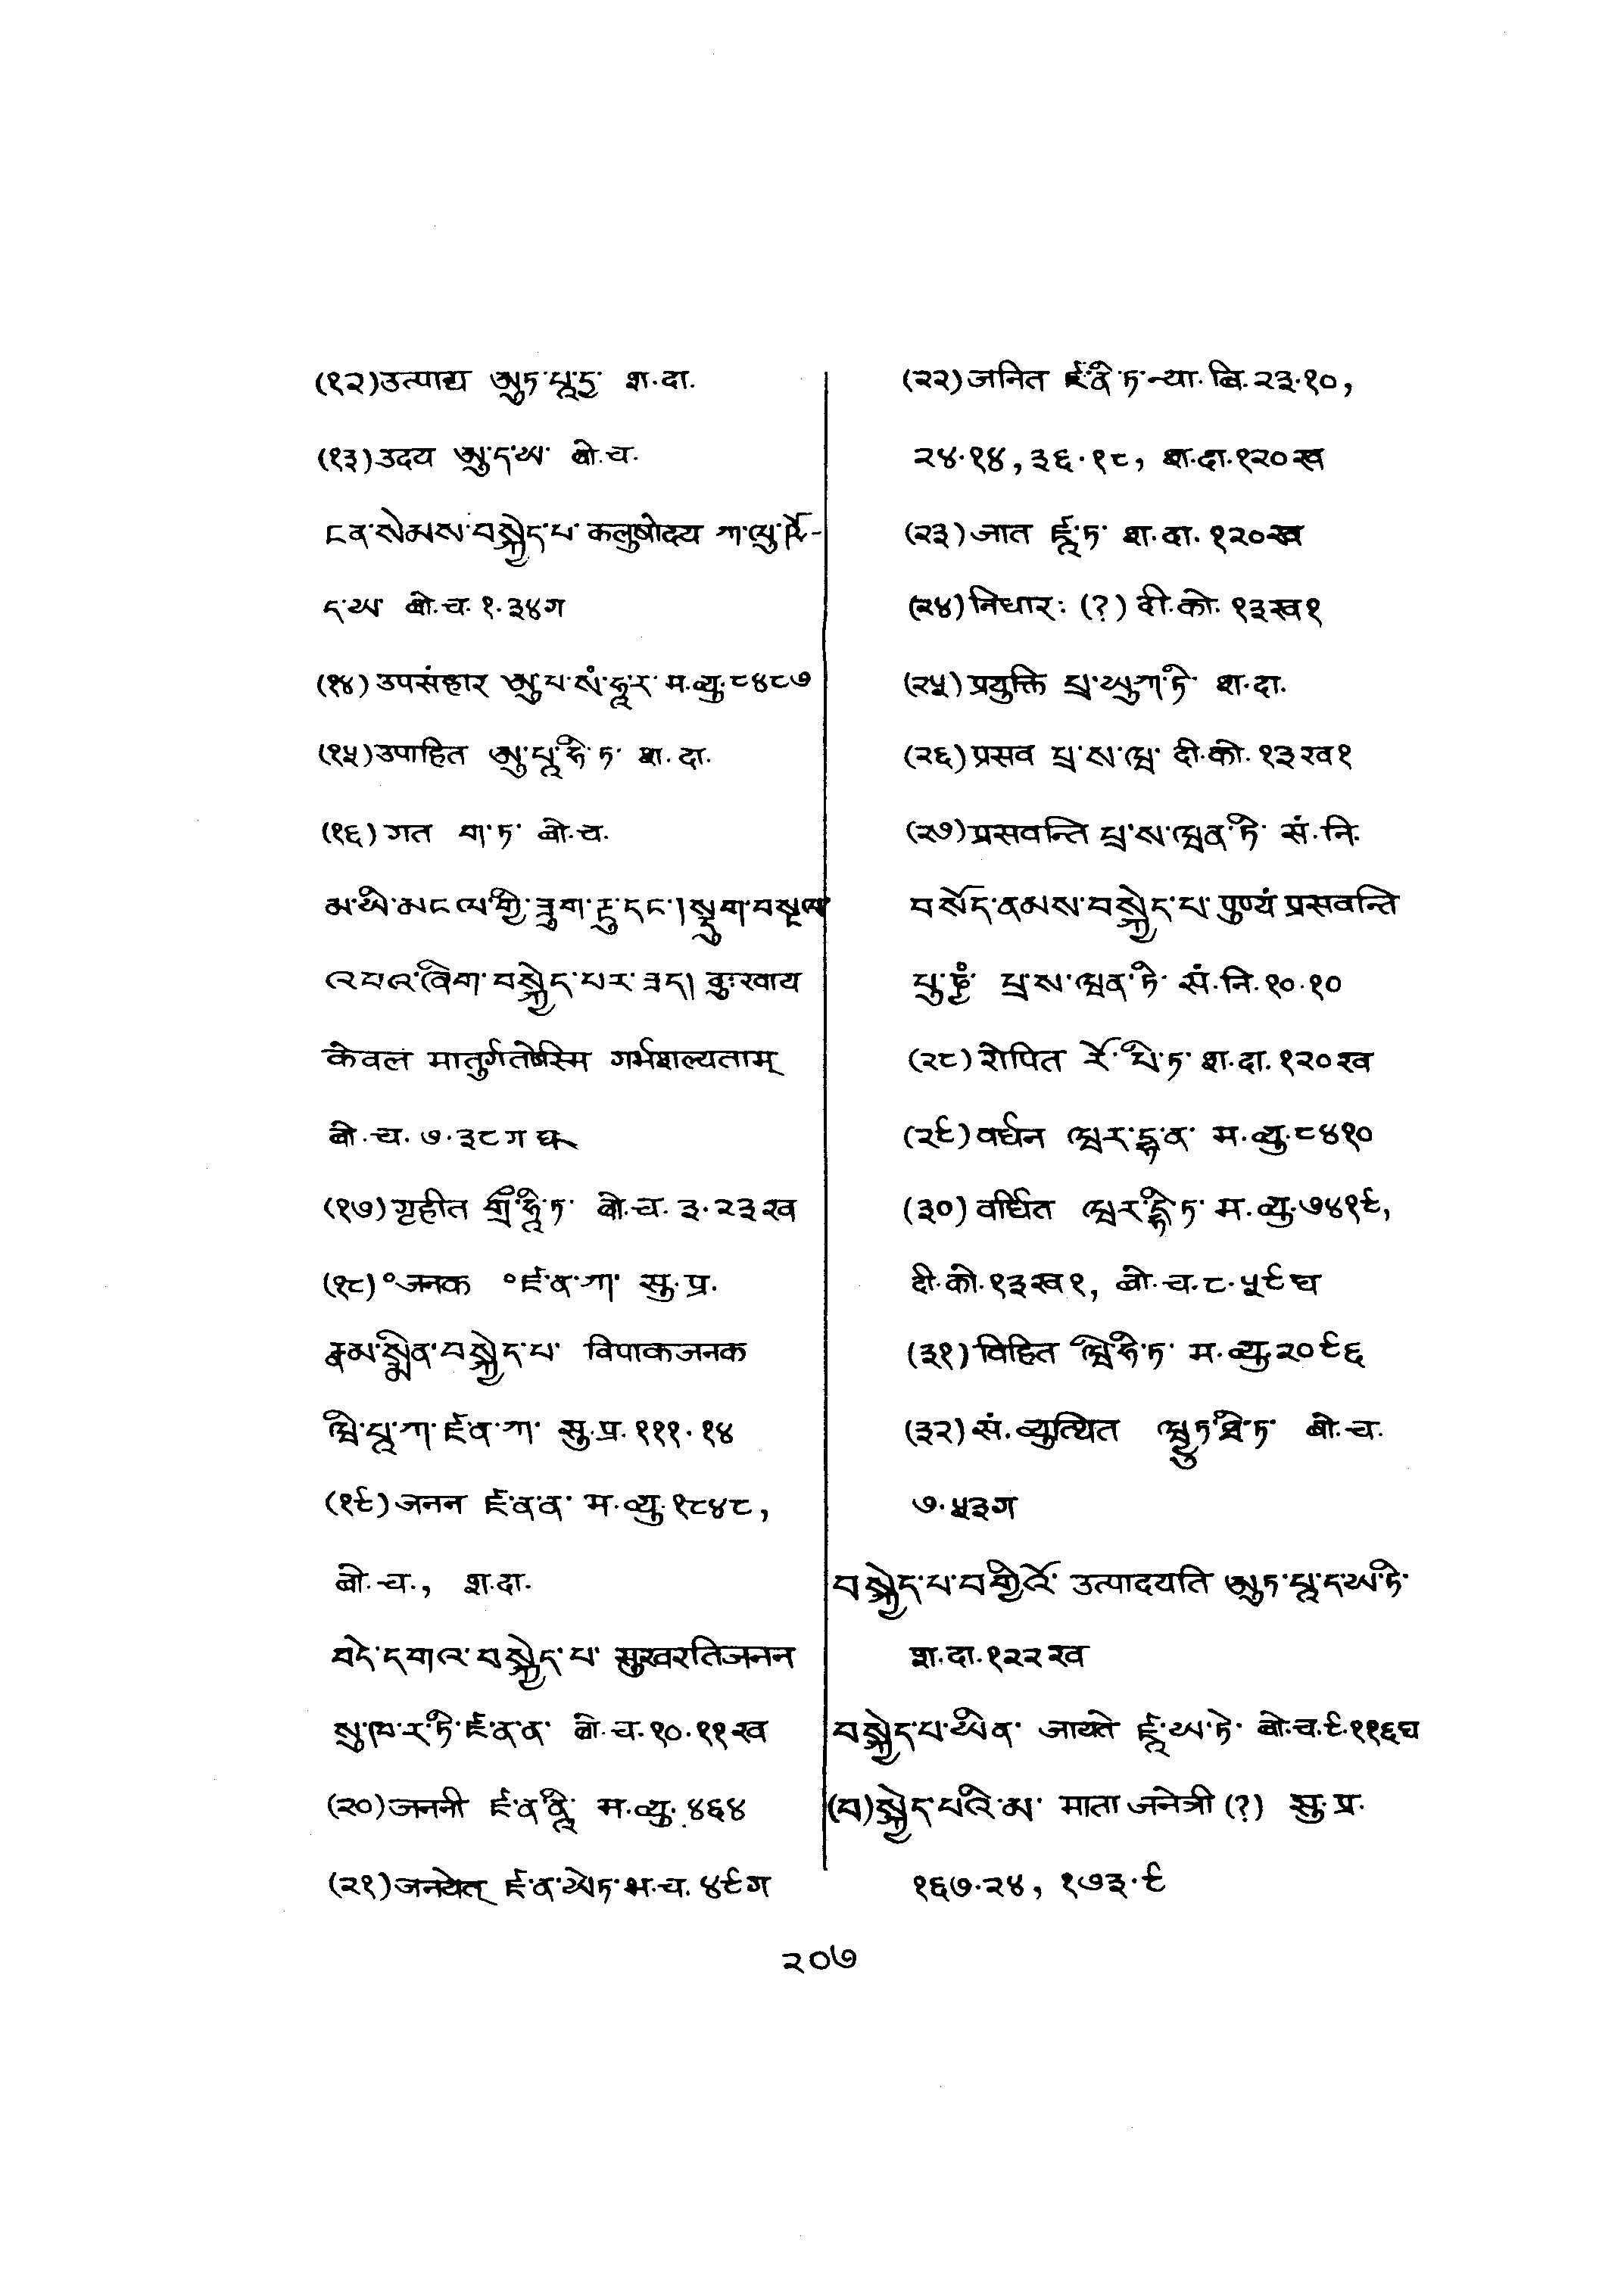 (१२) उत्पाद्य ཨུཏ་པཱ་དྱ་ श.दा.
(१३) उदय ཨུ་ད་ཡ་ बो.च.
ངན་སེམས་བསྐྱེད་པ་ कलुषोदय ཀ་ལུ་ཥོ-
ད་ཡ་ बो.च. १.३४ग
(१४) उपसंहार ཨུ་པ་སཾ་ཧཱ་ར་ म.व्यु.८४८७
(१५) उपाहित ཨུ་པཱ་ཧི་ཏ་ श.दा.
(१६) गत ག་ཏ་ बो.च.
མ་ཡི་མངལ་གྱི་ཟུག་རྔུ་དང་། སྡུག་བསྔལ་
འབའ་ཞིག་བསྐྱེད་པར་ཟད། दुःखाय
केवलं मातुर्गतोऽस्मि गर्भशल्यताम्
बो.च. ७.३८ग घ
(१७) गृहीत གྲྀ་ཧཱི་ཏ་ बो.च. ३.२३ख
(१८) °जनक °ཛ་ན་ཀ་ सु.प्र.
རྣམ་སྨིན་བསྐྱེད་པ་ विपाकजनक
ཝི་པཱ་ཀ་ཛ་ན་ཀ་ सु.प्र.१११.१४
(१९) जनन ཛ་ན་ན་ म.व्यु.१८४८,
बो.च., श.दा.
བདེ་དགའ་བསྐྱེད་པ་ सुखरतिजनन
སུ་ཁ་ར་ཏི་ཛ་ན་ན་ बो.च.१०.११ख
(२०) जननी ཛ་ན་ནཱི་ म.व्यु.४६४
(२१) जनयेत् ཛ་ན་ཡེཏ་ भ.च. ४९ग
(२२) जनित ཛ་ནི་ཏ་ न्या.बि.२३.१०,
२४.१४, ३६.१८, श.दा.१२०ख
(२३) जात ཛཱ་ཏ་ श.दा.१२०ख
(२४) निधारः (?) दी.को. १३ख१
(२५) प्रयुक्ति པྲ་ཡུཀ་ཏི་ श.दा.
(२६) प्रसव པྲ་ས་ཝ་ दी.को.१३ख१
(२७) प्रसवन्ति པྲ་ས་ཝན་ཏི་ सं.नि.
བསོད་ནམས་བསྐྱེད་པ་ पुण्यं प्रसवन्ति
པུ་ཎྱཾ་ པྲ་ས་ཝན་ཏི་ सं.नि.१०.१०
(२८) रोपित རོ་པི་ཏ་ श.दा.१२०ख
(२९) वर्धन ཝར་དྷ་ན་ म.व्यु.८४१०
(३०) वर्धित ཝར་དྷི་ཏ་ म.व्यु.७४१९,
दी.को.१३ख१, बो.च.८.५९घ
(३१) विहित ཝི་ཧི་ཏ་ म.व्यु.२०९६
(३२) सं.व्युत्थित ཝྱུཏ་ཐི་ཏ་ बो.च.
७.५३ग
བསྐྱེད་པ་བགྱིའོ་ उत्पादयति ཨུཏ་པཱ་ད་ཡ་ཏི་
श.दा.१२२ख
བསྐྱེད་པ་ཡིན་ जायते ཛཱ་ཡ་ཏེ་ बो.च.९.११६घ
(བ)སྐྱེད་པའི་མ་ माता जनेत्री (?) सु.प्र.
१६७.२४, १७३.९
२०७